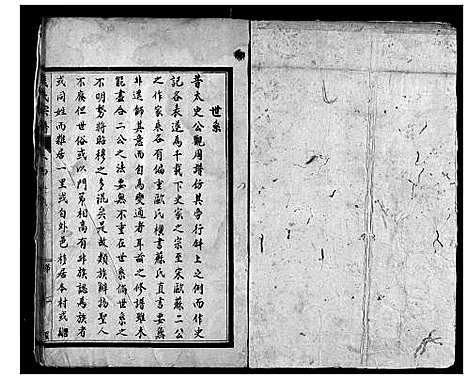 世系
昔太史公觀周譜仿其旁行斜上之例而作史
記各表遂為千載下史家之宗至宋歐蘇二公
之作家乘各有偏重歐氏橫書蘇氏直書要無
非遺師其意而自為變通者耳前之修譜雖未
能盡合二公之法要無不重在世系偹世系之
不明勢將昭穆之多混矣是故類族辦物聖人
不廢但世俗或以門第相高有非族認為族者
或同姓而雜居一里或自外邑移居本村或繼
氏宗譜